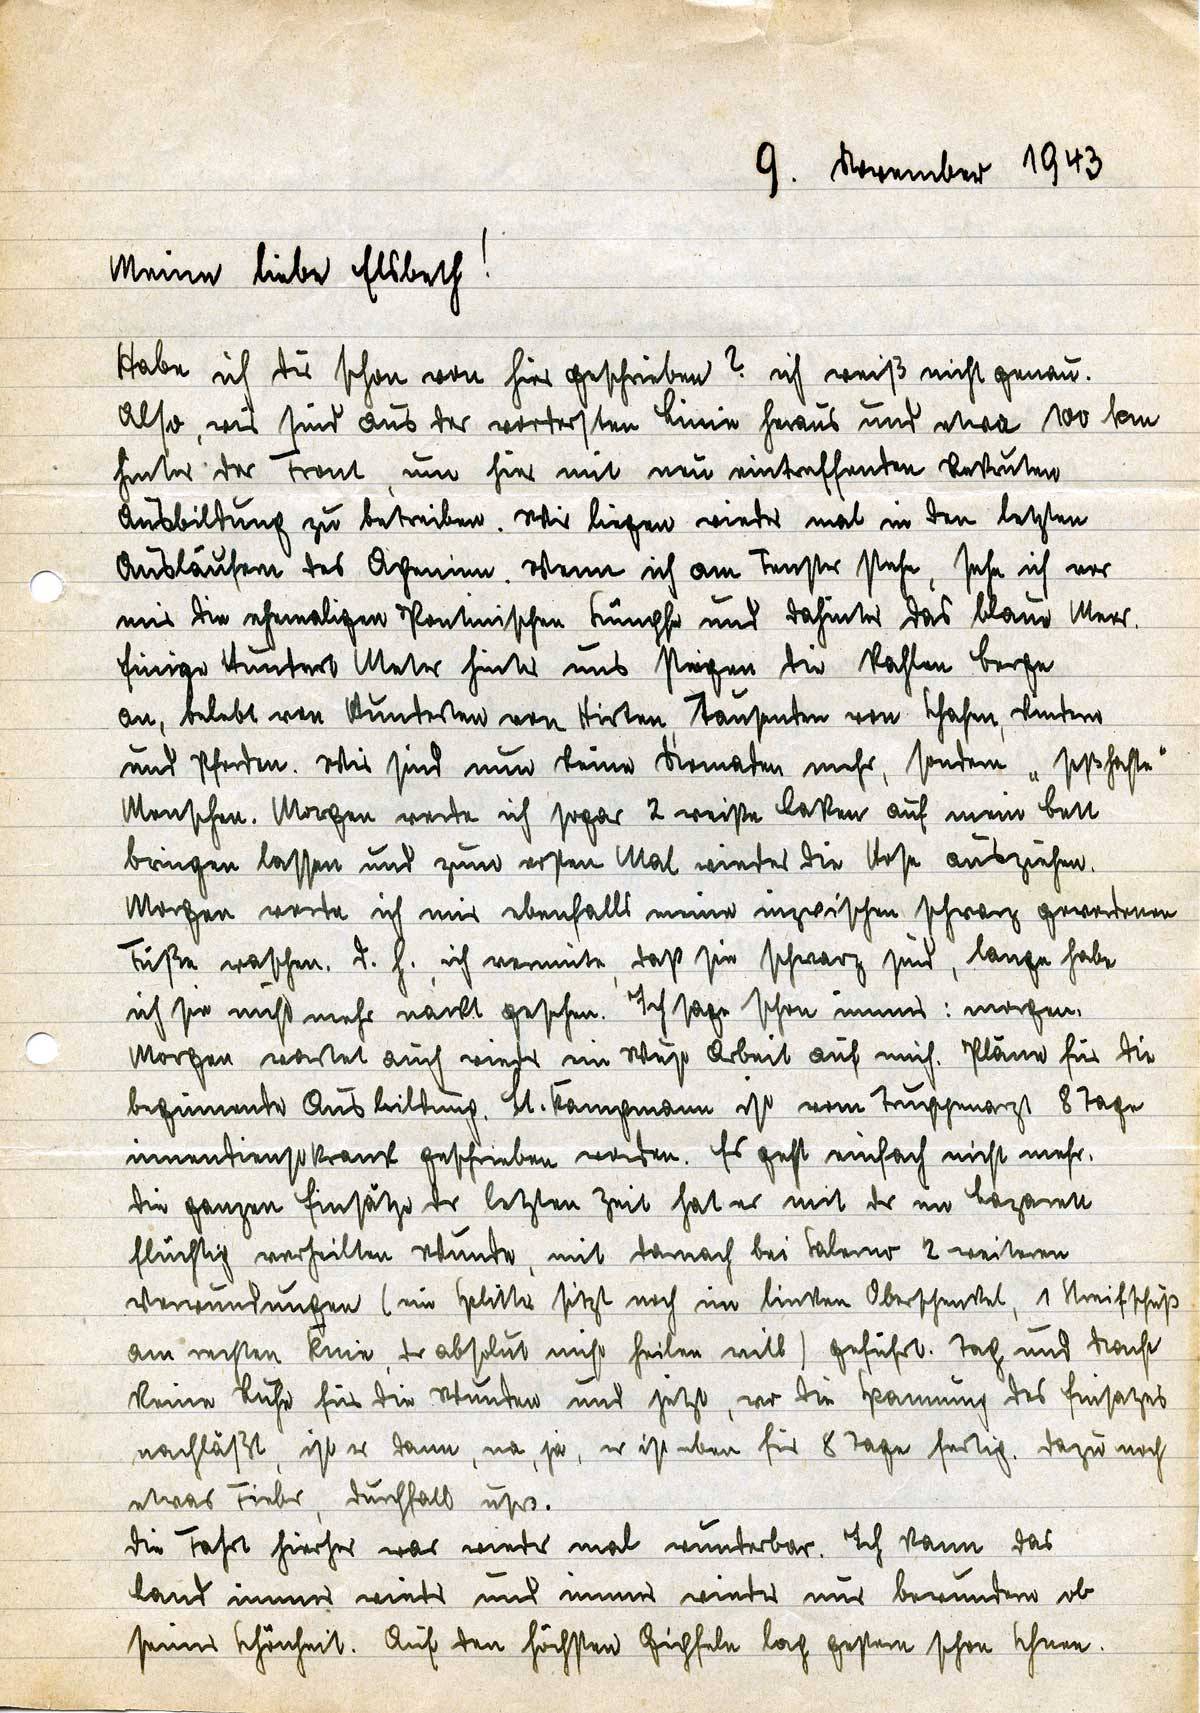 9. November 1943
Meine liebe Elsbeth!
Habe ich dir schon von hier geschrieben? ich weiß nicht genau.
Also, wir sind aus der vordersten Linie heraus und etwa 100 km
hinter der Front, um hier mit neu eintreffenden Rekruten
Ausbildung zu betreiben. Wir liegen wieder mal in den letzten
Ausläufern des Apennin. Wenn ich am Fenster stehe, sehe ich vor
mir die ehemaligen Pontinischen Sümpfe und dahinter das blaue Meer.
Einige Hundert Meter hinter uns steigen die kahlen Berge
an, belebt von Hunderten von Hirten, Tausenden von Schafen, Rindern
und Pferden. Wir sind nun keine Nomaden mehr, sondern „seßhafte"
Menschen. Morgen werde ich sogar 2 weiße Laken auf mein Bett
bringen lassen und zum ersten Mal wieder die Hose ausziehen.
Morgen werde ich mir ebenfalls meine inzwischen schwarz gewordenen
Füße waschen. d. h. ich vermute, daß sie schwarz sind, lange habe
ich sie nicht mehr nackt gesehen. Ich sage schon immer: morgen.
Morgen wartet auch wieder ein Wust Arbeit auf mich. Pläne für die
beginnende Ausbildung. Lt. Kampmann ist vom Truppenarzt 8 Tage
innendienstkrank geschrieben worden. Es geht einfach nicht mehr.
Die ganzen Einsätze der letzten Zeit hat er mit der im Lazarett
flüchtig verheilten Wunde, mit danach bei Salerno 2 weiteren
Verwundungen (ein Splitter sitzt noch im linken Oberschenkel, 1 Streifschuß
am rechten Knie, der absolut nicht heilen will) geführt. Tag und Nacht
keine Ruhe für die Wunden und jetzt, wo die Spannung des Einsatzes
nachläßt, ist er dann, na, ja, er ist eben für 8 Tage fertig. Dazu noch
etwas Fieber, Durchfall usw.
Die Fahrt hierher war wieder mal wunderbar. Ich kann das
Land immer wieder und immer wieder nur bewundern ob
seiner Schönheit. Auf den höchsten Gipfeln lag gestern schon Schnee.